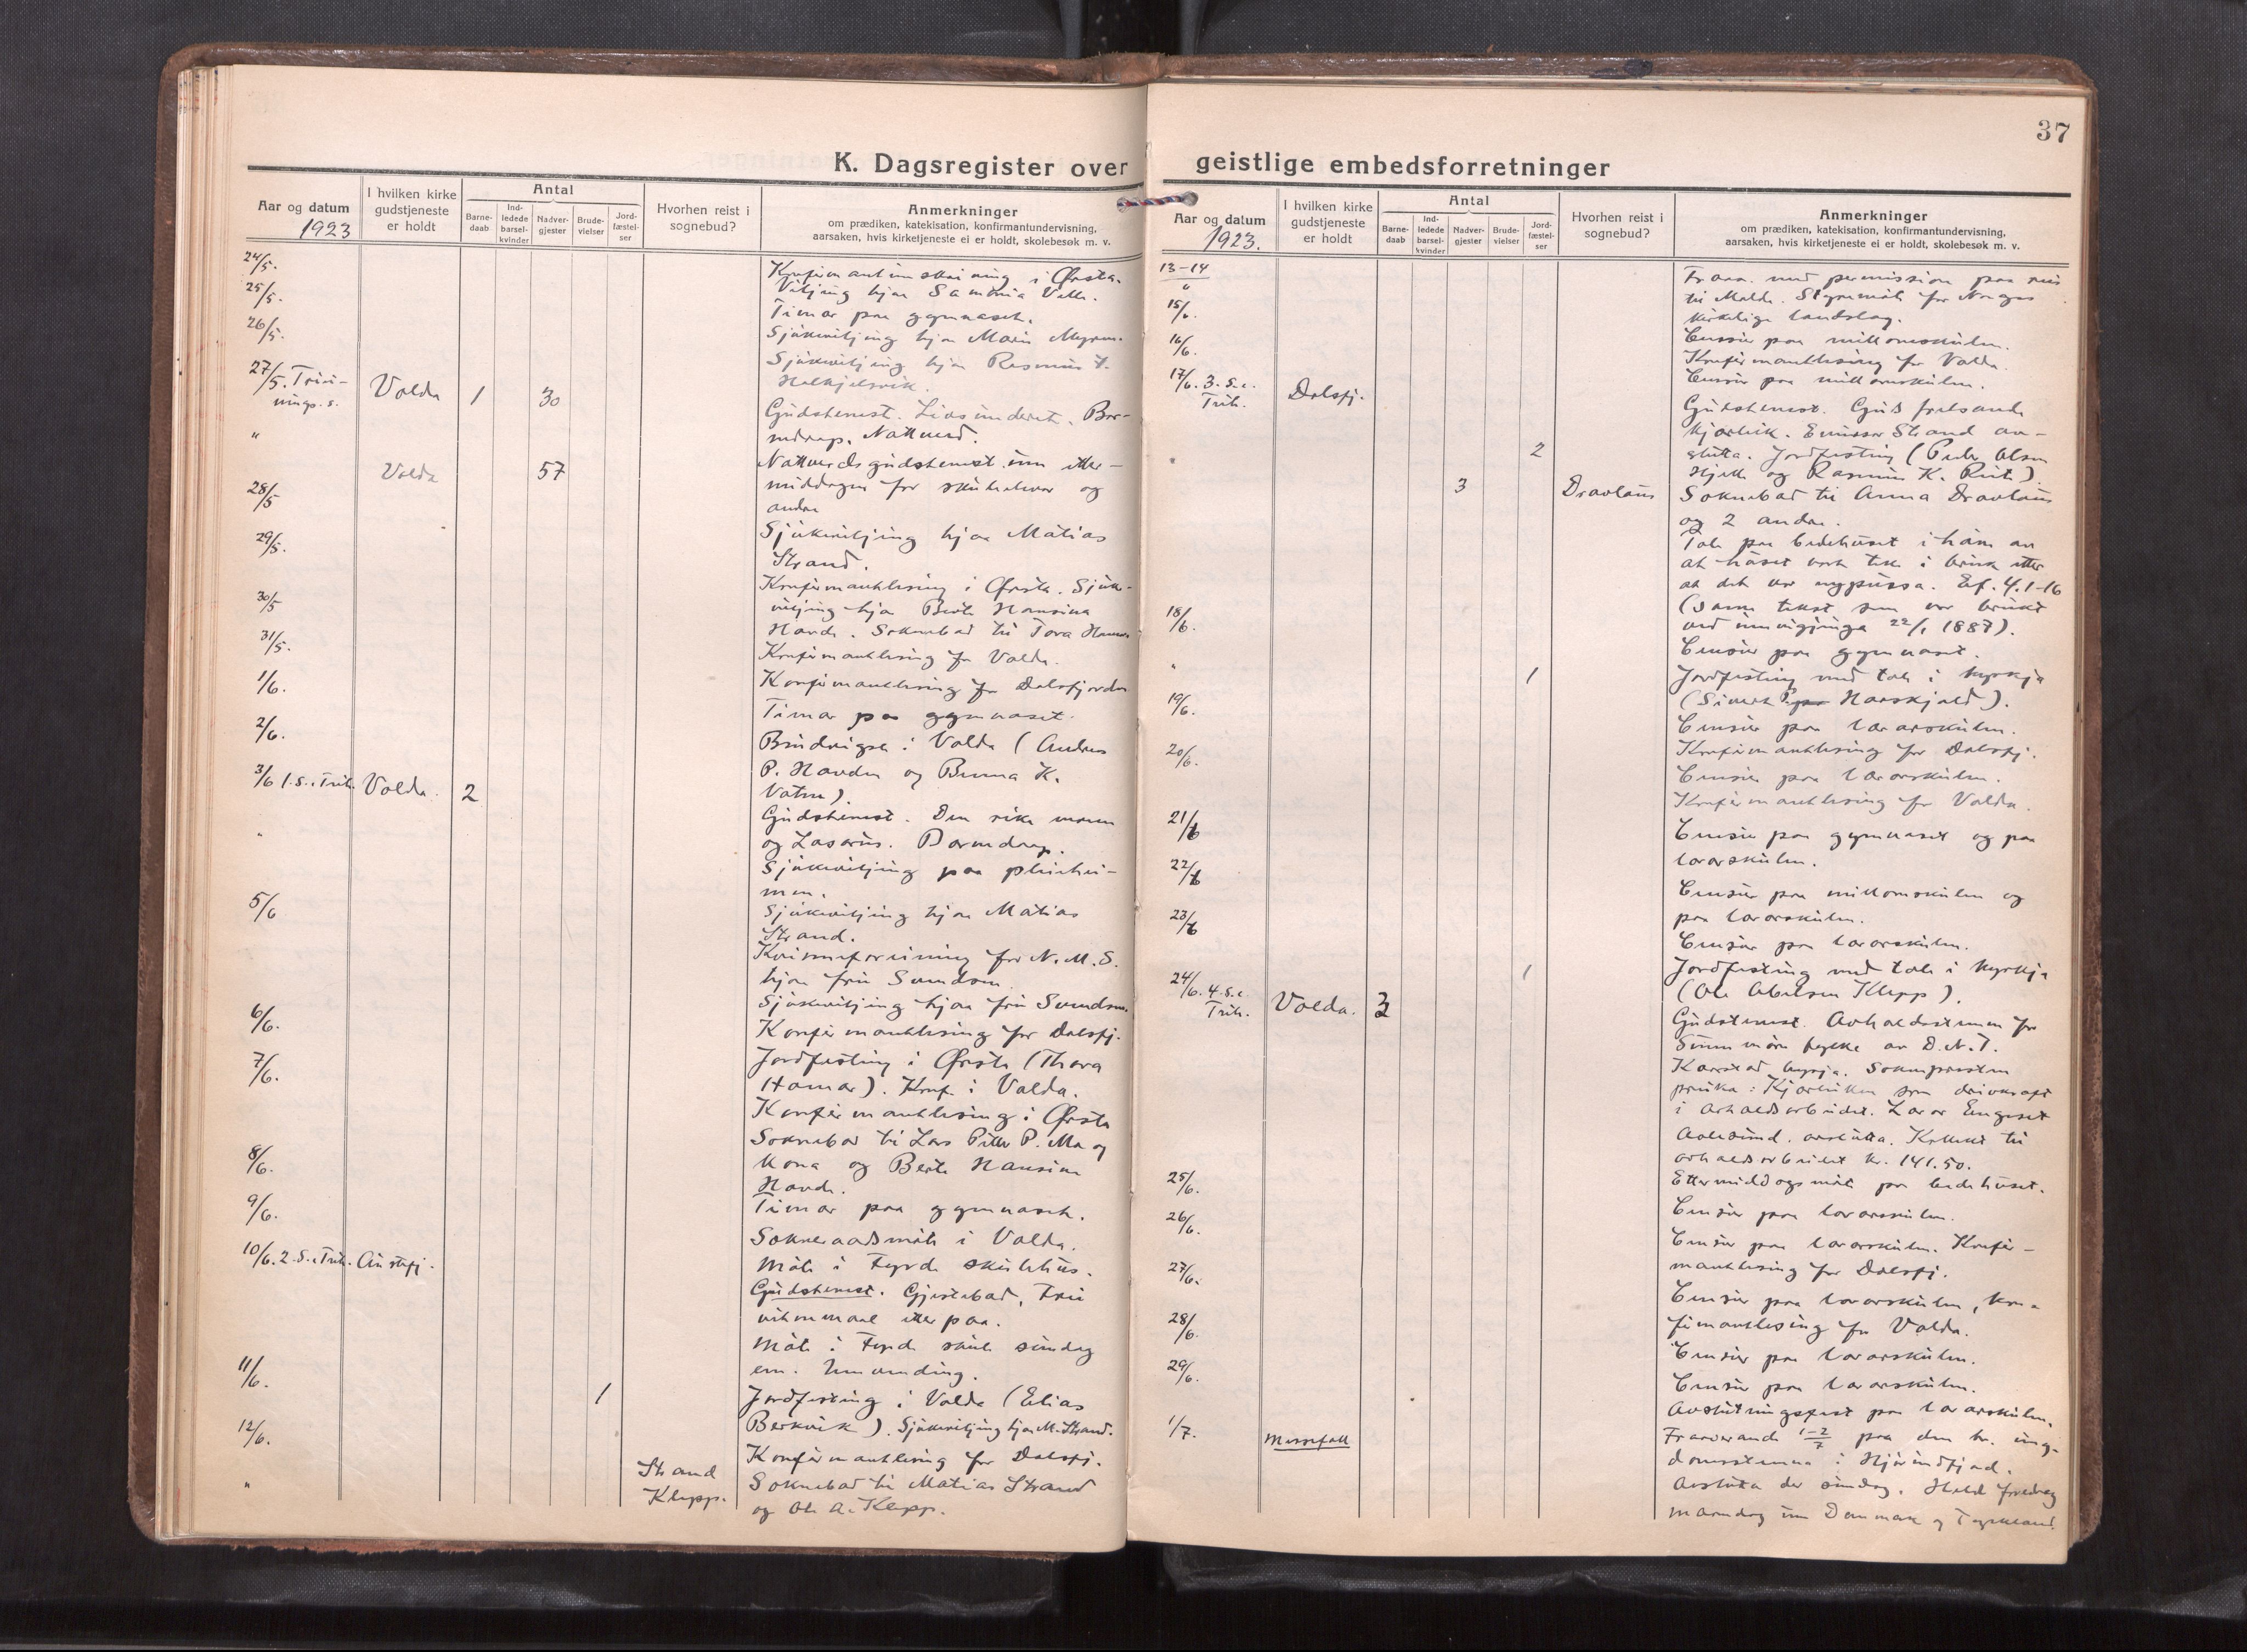 K. Dagsregister over
Aar og datum
1923
I hvilken kirke
gudstjeneste
er holdt
Antal
Barne-
daab
Ind-
ledede
barsel-
kvinder
Nadver-
gjester
Brude-
vielser
Jord-
fæstel-
ser
Hvorhen reist i
sognebud?
Anmerkninger
om prædiken, katekisation, konfirmantundervisning,
aarsaken, hvis kirketjeneste ei er holdt, skolebesøk m. v.
24/5. Konfirmantinnskrining i Ørsta.
25/5. Vitjing hjaa
Timar paa gymnaset.
26/5. Sjukevitjing hjaa
Sjukevitjing hjaa Rasmus
27/5. Trini-
Volda 1 30
Gudstenest. Barne-
daap. Nattverd.
" Volda 57
Nattverdsgudstenest um etter-
middagen for skuleelevar og
andre
28/5 Sjukevitjing hjaa Matias
Strand.
29/5. Konfirmantlesing i Ørsta. Sjuke-
vitjing hjaa Berte Hansina
Hovde. Soknebod til Tora Hamar
30/5 Konfirmantlesing fr Volda.
31/5. Konfirmantlesing fr Dalsfjorden
1/6. Timar paa gymnaset.
2/6. Brudvigsla i Volda (Andreas
P. Hovden og K.
Vatne).
3/6 1. S. e. Trih. Volda. 2
Gudstenest. Den rike mann
og Lasarus. Barnedaap.
" Sjukevitjing paa pleiehei-
men.
5/6 Sjukevitjing hjaa Matias
Strand.
Kvinneforening for N. M. S.
hjaa fru
Sjukevitjing hjaa fru
6/6. Konfirmantlesing for Dalsfj.
7/6. Jordfesting i Ørsta (Thora
Hamar). Konf. i Volda.
Konfirmantlesing i Ørsta
Soknebod til Lars Petter P. Mo og
kona og Berte Hansine
Hovde.
8/6. Timar paa gymnaset.
9/6. Sokneraadsmøte i Volda.
Møte i Fyrde skulehus.
10/6. 2. S. e. Trih. Austefj.
Gudstenest. Gjestebod,
etterpaa.
Møte i Fyrde skule sundag
em.
11/6. 1 Jordfesting i Volda (Elias
Berkvik). Sjukevitjing hjaa M. Strand.
12/6. Konfirmantlesing for Dalsfj.
" Strand Soknebod til Matias Strand
Klepp. og Ole A. Klepp.
37
geistlige embedsforretninger
Aar og datum
1923.
I hvilken kirke
gudstjeneste
er holdt
Antal
Barne-
daab
Ind-
ledede
barsel-
kvinder
Nadver-
gjester
Brude-
vielser
Jord-
fæstel-
ser
Hvorhen reist i
sognebud?
Anmerkninger
om prædiken, katekisation, konfirmantundervisning,
aarsaken, hvis kirketjeneste ei er holdt, skolebesøk m. v.
13-14 med permission paa reis
til Molde. Styremøte for Noregs
kirkelige landslag.
15/6. Censur paa millomskulen.
16/6. Konfirmantlesing fr Volda.
Censur paa millomskulen.
17/6. 3. S. e.
Trih. Dalsfj.
Gudstenest. Guds frelsande
kjærleik. Strand av-
slutta. Jordfesting (Peder Olsen
2
og Rasmus K.
" 3 Dravlaus Soknebod til Anna Dravlaus
og 2 andre.
Tale paa bedehuset i høve av
at huset vart teke i bruk etter
at det var nypussa. Ef. 4. 1-16
(same tekst som var brukt
ved innvigjinga 22/1 1887).
18/6. Censur paa gymnaset.
" 1 Jordfesting med tale i kyrkja
(Sivert P. Haaskjold).
19/6. Censur paa lærarskulen.
Konfirmantlesing for Dalsfj.
20/6. Censur paa lærarskulen.
Konfirmantlesing for Volda.
21/6 Censur paa gymnaset og paa
lærarskulen.
22/6 Censur paa millomskulen og
paa lærarskulen.
23/6 Censur paa lærarskulen.
1 Jordfesting med tale i kyrkja
(Ole Abelsen Klepp).
24/6. 4. S. e.
Trih. Volda. 3
Gudstenest. Avhaldsstemne for
Sunnmøre fylke av D. N. T.
Soknepresten
preika: Kjærleiken som drivkraft
i avhaldsarbeidet. Lærar Engeset
Aalesund, avslutta. Kollekt til
avhaldsarbeidet kr. 141.50.
Ettermiddagsmøte paa bedehuset.
25/6. Censur paa lærarskulen.
26/6. Censur paa lærarskulen. Konfir-
mantlesing for Dalsfj.
27/6. Censur paa lærarskulen, kon-
firmantlesing fr Volda.
28/6. Censur paa lærarskulen.
29/6. Censur paa lærarskulen.
Avslutningsfest paa lærarskulen.
1/7. Messefall
Fraaverande 1-2/7 paa den kr. ung-
domsstemna i Hjørundfjord.
Avslutta der sundag. Heldt fyredrag
maandag um Danmark og Tyskland.